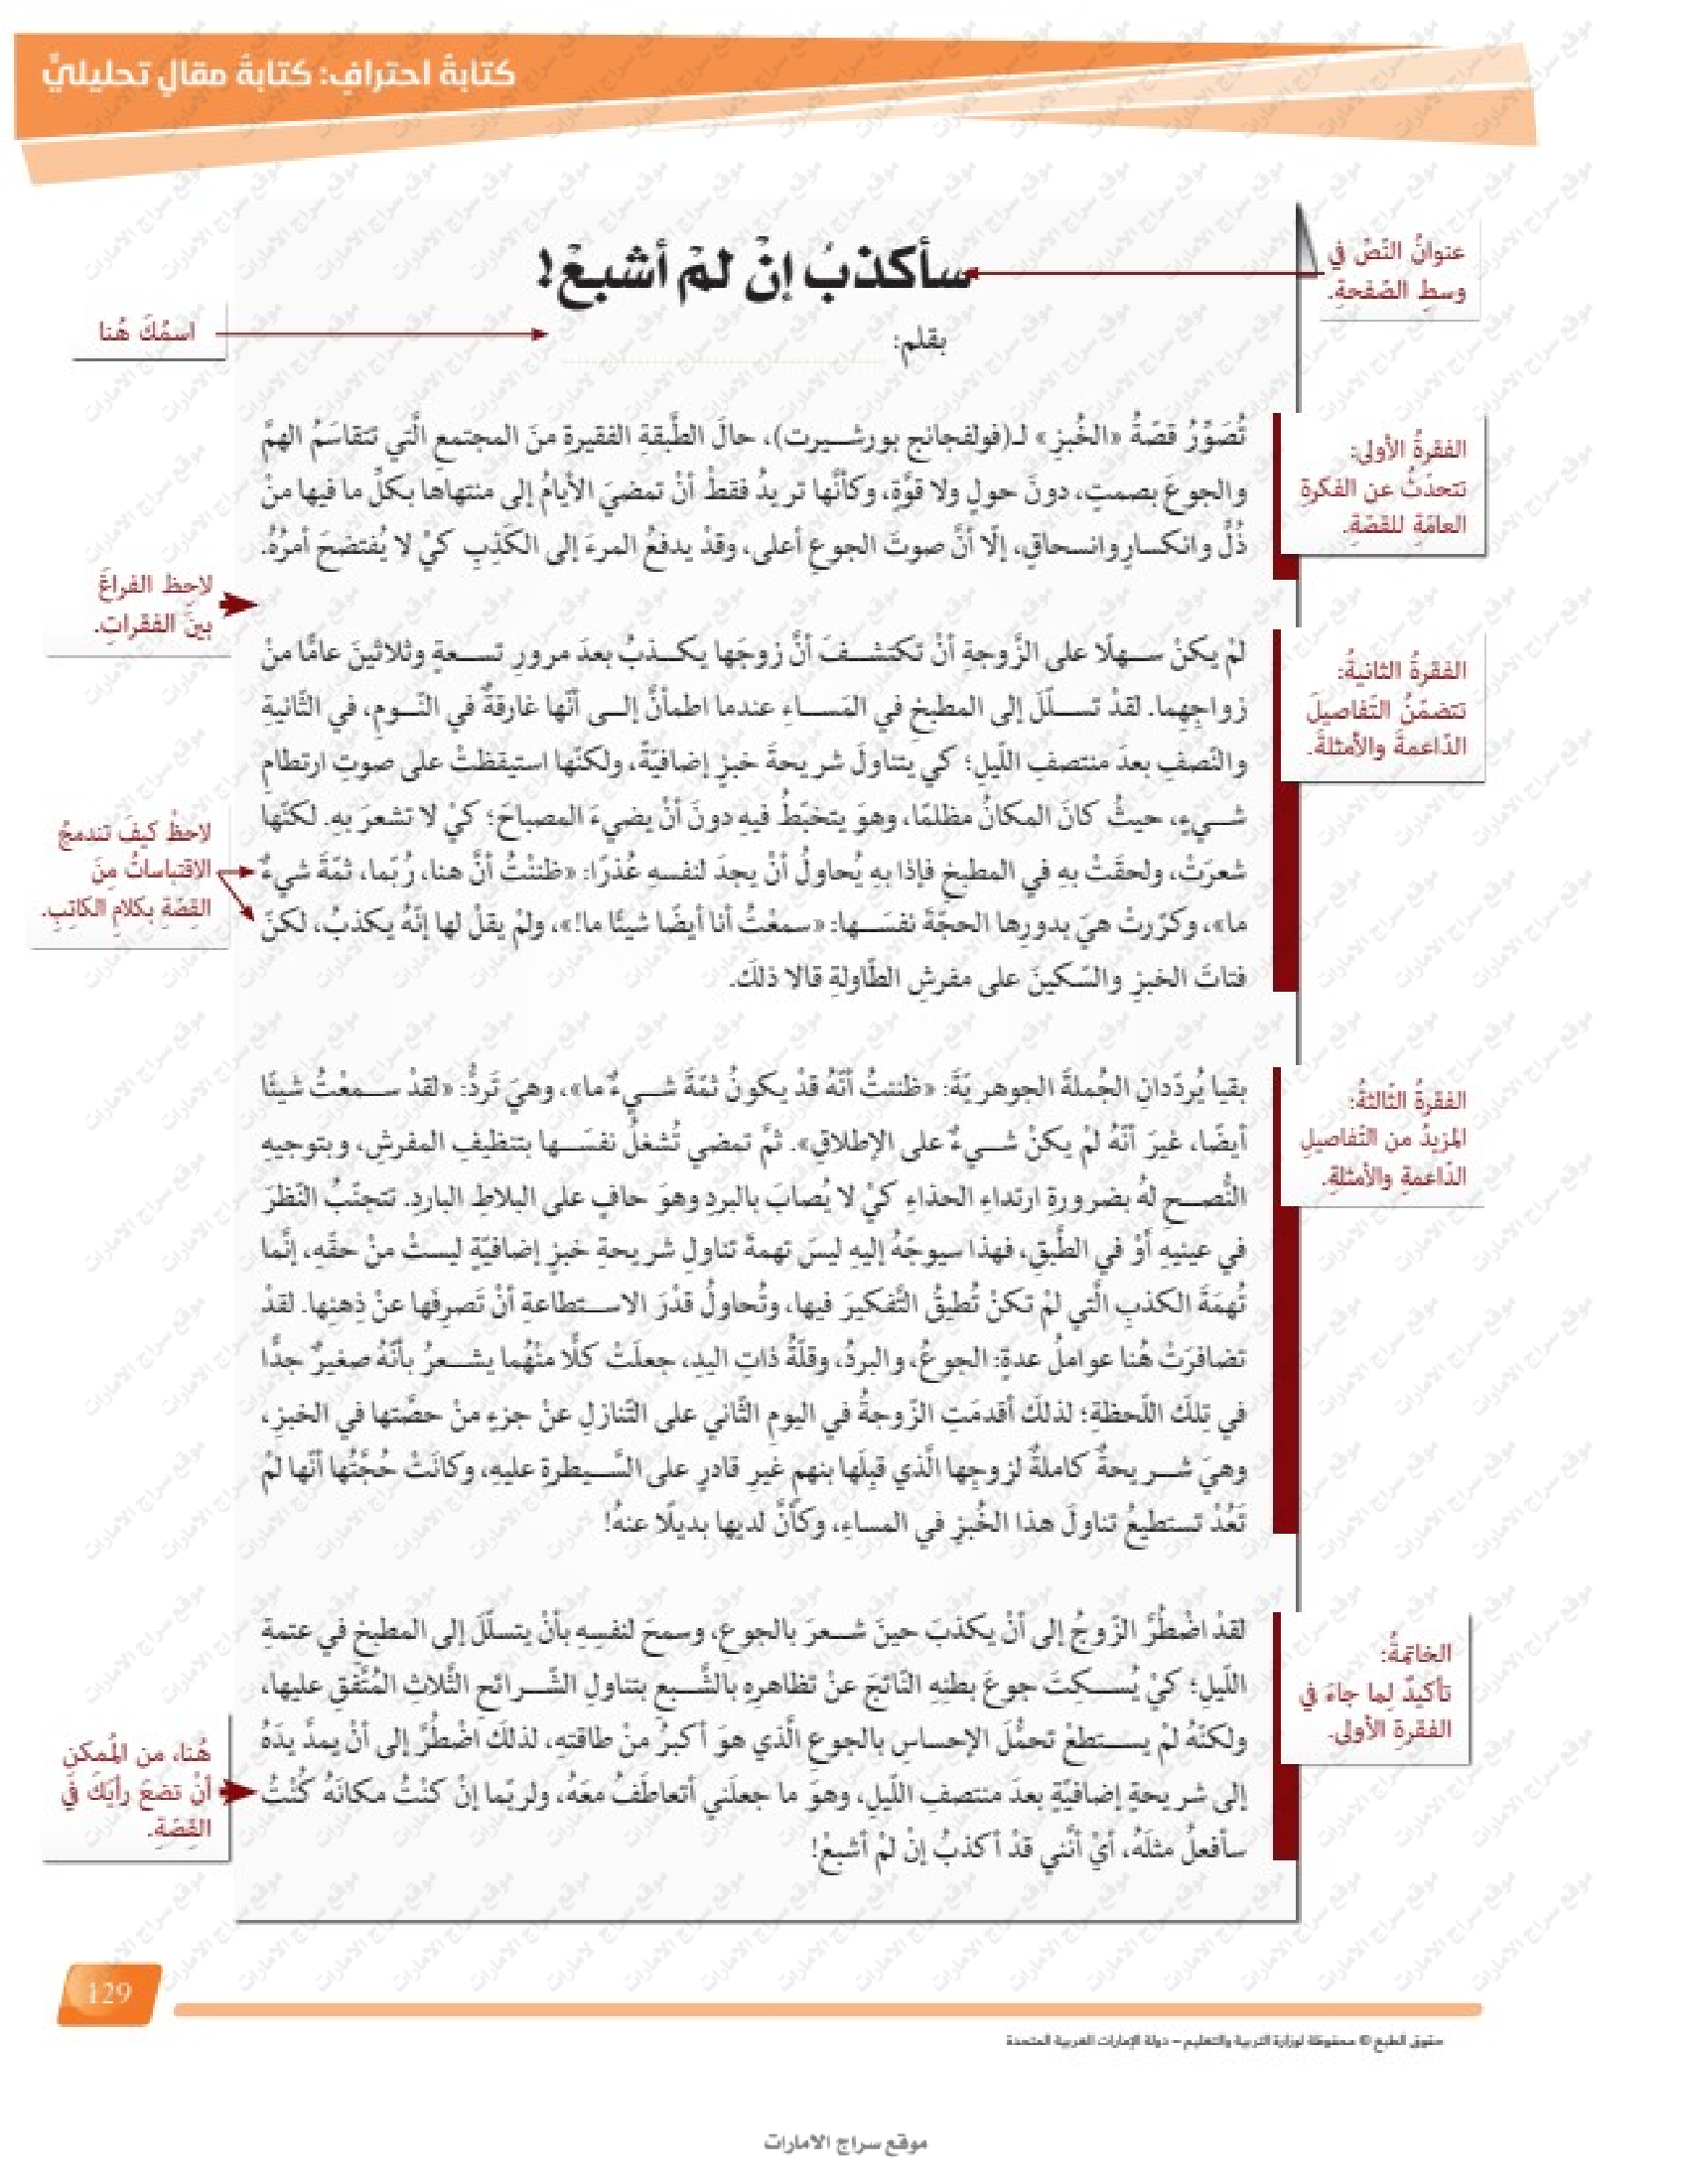 كتابةُ احترافٍ: كتابةُ مقالٍ تحليليٍّ
سأكذبُ إنْ لمْ أشبعْ!
عنوانُ النّصِّ في
وسطِ الصّفحةِ.
اسمُكَ هُنا
بقلم:
تُصَوِّرُ قصّةُ «الخُبزِ» لـ(فولفجانج بورشيرت)، حالَ الطَّبقةِ الفقيرةِ منَ المجتمعِ الَّتي تتقاسَمُ الهمَّ
والجوعَ بصمتٍ، دونَ حولٍ ولا قوَّةٍ، وكأنَّها تريدُ فقطْ أنْ تمضيَ الأيامُ إلى منتهاها بكلِّ ما فيها منْ
ذُلٍّ وانكسارٍ وانسحاقٍ، إلّا أنَّ صوتَ الجوعِ أعلى، وقدْ يدفعُ المرءَ إلى الكَذِبِ كيْ لا يُفتضحَ أمرُهُ.
الفقرةُ الأولى:
تتحدّثُ عن الفكرةِ
العامّةِ للقصّةِ.
لاحِظ الفراغَ
بينَ الفقراتِ.
لمْ يكنْ سهلًا على الزَّوجةِ أنْ تكتشفَ أنَّ زوجَها يكذبُ بعدَ مرورِ تسعةٍ وثلاثينَ عامًا منْ
زواجِهِما. لقدْ تسلّلَ إلى المطبخِ في المَساءِ عندما اطمأنَّ إلى أنّها غارقةٌ في النّومِ، في الثّانيةِ
والنّصفِ بعدَ منتصفِ اللّيلِ؛ كي يتناولَ شريحةَ خبزٍ إضافيّةً، ولكنّها استيقظتْ على صوتِ ارتطامِ
شيءٍ، حيثُ كانَ المكانُ مظلمًا، وهوَ يتخبّطُ فيهِ دونَ أنْ يضيءَ المصباحَ؛ كيْ لا تشعرَ بهِ. لكنّها
شعرَتْ، ولحقَتْ بهِ في المطبخِ فإذا بهِ يُحاولُ أنْ يجدَ لنفسهِ عُذرًا: «ظننْتُ أنَّ هنا، رُبّما، ثمّةَ شيءٌ
ما»، وكرّرتْ هيَ بدورِها الحجّةَ نفسَها: «سمعْتُ أنا أيضًا شيئًا ما!»، ولمْ يقلْ لها إنّهُ يكذبُ، لكنّ
فتاتَ الخبزِ والسّكينَ على مفرشِ الطّاولةِ قالا ذلكَ.
الفقرةُ الثانيةُ:
تتضمّنُ التّفاصيلَ
الدّاعمةَ والأمثلةَ.
لاحظْ كيفَ تندمجُ
الاقتباساتُ مِنَ
القِصّةِ بكلامِ الكاتِبِ.
بقيا يُردّدانِ الجُملةَ الجوهريّةَ: «ظننتُ أنّهُ قدْ يكونُ ثمّةَ شيءٌ ما»، وهيَ تَردُّ: «لقدْ سمعْتُ شيئًا
أيضًا، غيرَ أنّهُ لمْ يكنْ شيءٌ على الإطلاقِ». ثمَّ تمضي تُشغلُ نفسَها بتنظيفِ المفرشِ، وبتوجيهِ
النُّصحِ لهُ بضرورةِ ارتداءِ الحذاءِ كيْ لا يُصابَ بالبردِ وهوَ حافٍ على البلاطِ الباردِ. تتجنّبُ النّظرَ
في عينيهِ أوْ في الطَّبقِ، فهذا سيوجّهُ إليهِ ليسَ تهمةَ تناولِ شريحةِ خبزٍ إضافيّةٍ ليستْ منْ حقّهِ، إنَّما
تُهمَةَ الكذبِ الَّتي لمْ تكنْ تُطيقُ التَّفكيرَ فيها، وتُحاولُ قدْرَ الاستطاعةِ أنْ تَصرِفَها عنْ ذِهنِها. لقدْ
تضافرَتْ هُنا عواملُ عدةٌ: الجوعُ، والبردُ، وقلّةُ ذاتِ اليدِ، جعلَتْ كلًّا منْهُما يشعرُ بأنّهُ صغيرٌ جدًّا
في تِلكَ اللّحظةِ؛ لذلكَ أقدمَتِ الزّوجةُ في اليومِ الثّاني على التّنازلِ عنْ جزءٍ منْ حصَّتها في الخبزِ،
وهيَ شريحةٌ كاملةٌ لزوجِها الَّذي قبلَها بنهمٍ غيرِ قادرٍ على السَّيطرةِ عليهِ، وكانَتْ حُجَّتُها أنّها لمْ
تَعُدْ تستطيعُ تناولَ هذا الخُبزِ في المساءِ، وكأنَّ لديها بديلًا عنهُ!
الفقرةُ الثّالثةُ:
المزيدُ من التّفاصيلِ
الدّاعمةِ والأمثلةِ.
لقدْ اضْطُرَّ الزّوجُ إلى أنْ يكذبَ حينَ شعرَ بالجوعِ، وسمحَ لنفسِهِ بأنْ يتسلّلَ إلى المطبخِ في عتمةِ
اللّيلِ؛ كيْ يُسكِتَ جوعَ بطنِهِ النّاتجَ عنْ تظاهرِهِ بالشَّبعِ بتناولِ الشّرائحِ الثَّلاثِ المُتَّفقِ عليها،
ولكنّهُ لمْ يستطعْ تحمُّلَ الإحساسِ بالجوعِ الَّذي هوَ أكبرُ منْ طاقتهِ، لذلكَ اضْطُرَّ إلى أنْ يمدَّ يدَهُ
إلى شريحةٍ إضافيّةٍ بعدَ منتصفِ اللّيلِ، وهوَ ما جعلَني أتعاطَفُ معَهُ، ولربّما إنْ كنْتُ مكانَهُ كُنْتُ
سأفعلُ مثلَهُ، أيْ أنّني قدْ أكذبُ إنْ لمْ أشبعْ!
الخاتمةُ:
تأكيدٌ لِما جاءَ في
الفقرةِ الأولى.
هُنا، من المُمكنِ
أنْ تضعَ رأيَكَ في
القِصّةِ.
129
حقوق الطبع © محفوظة لوزارة التربية والتعليم – دولة الإمارات العربية المتحدة
موقع سراج الامارات